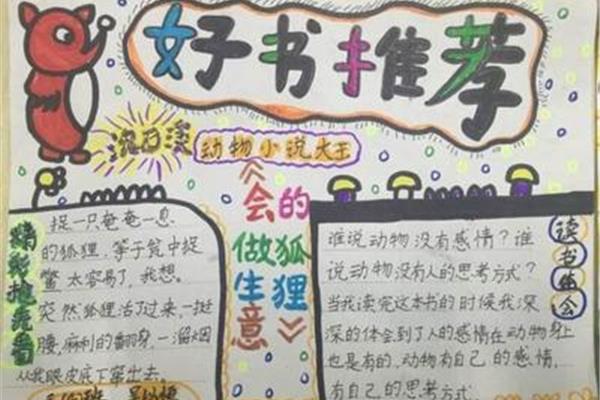 好书推荐
沈石溪
动物小说大王
《会做生意
的狐狸》
精彩抢先看
捉一只奄奄一息
的狐狸,等于瓮中捉
鳖太容易了,我想。
突然狐狸活了过来,一挺
腰,麻利的翻身,一溜烟
从我眼皮底下窜出去。
读书体会
谁说动物没有感情?谁
说动物没有人的思考方式?
当我读完这本书的时候我深
深的体会到了人的感情在动物身上
也是有的,动物有自己的感情,
有自己的思考方式.